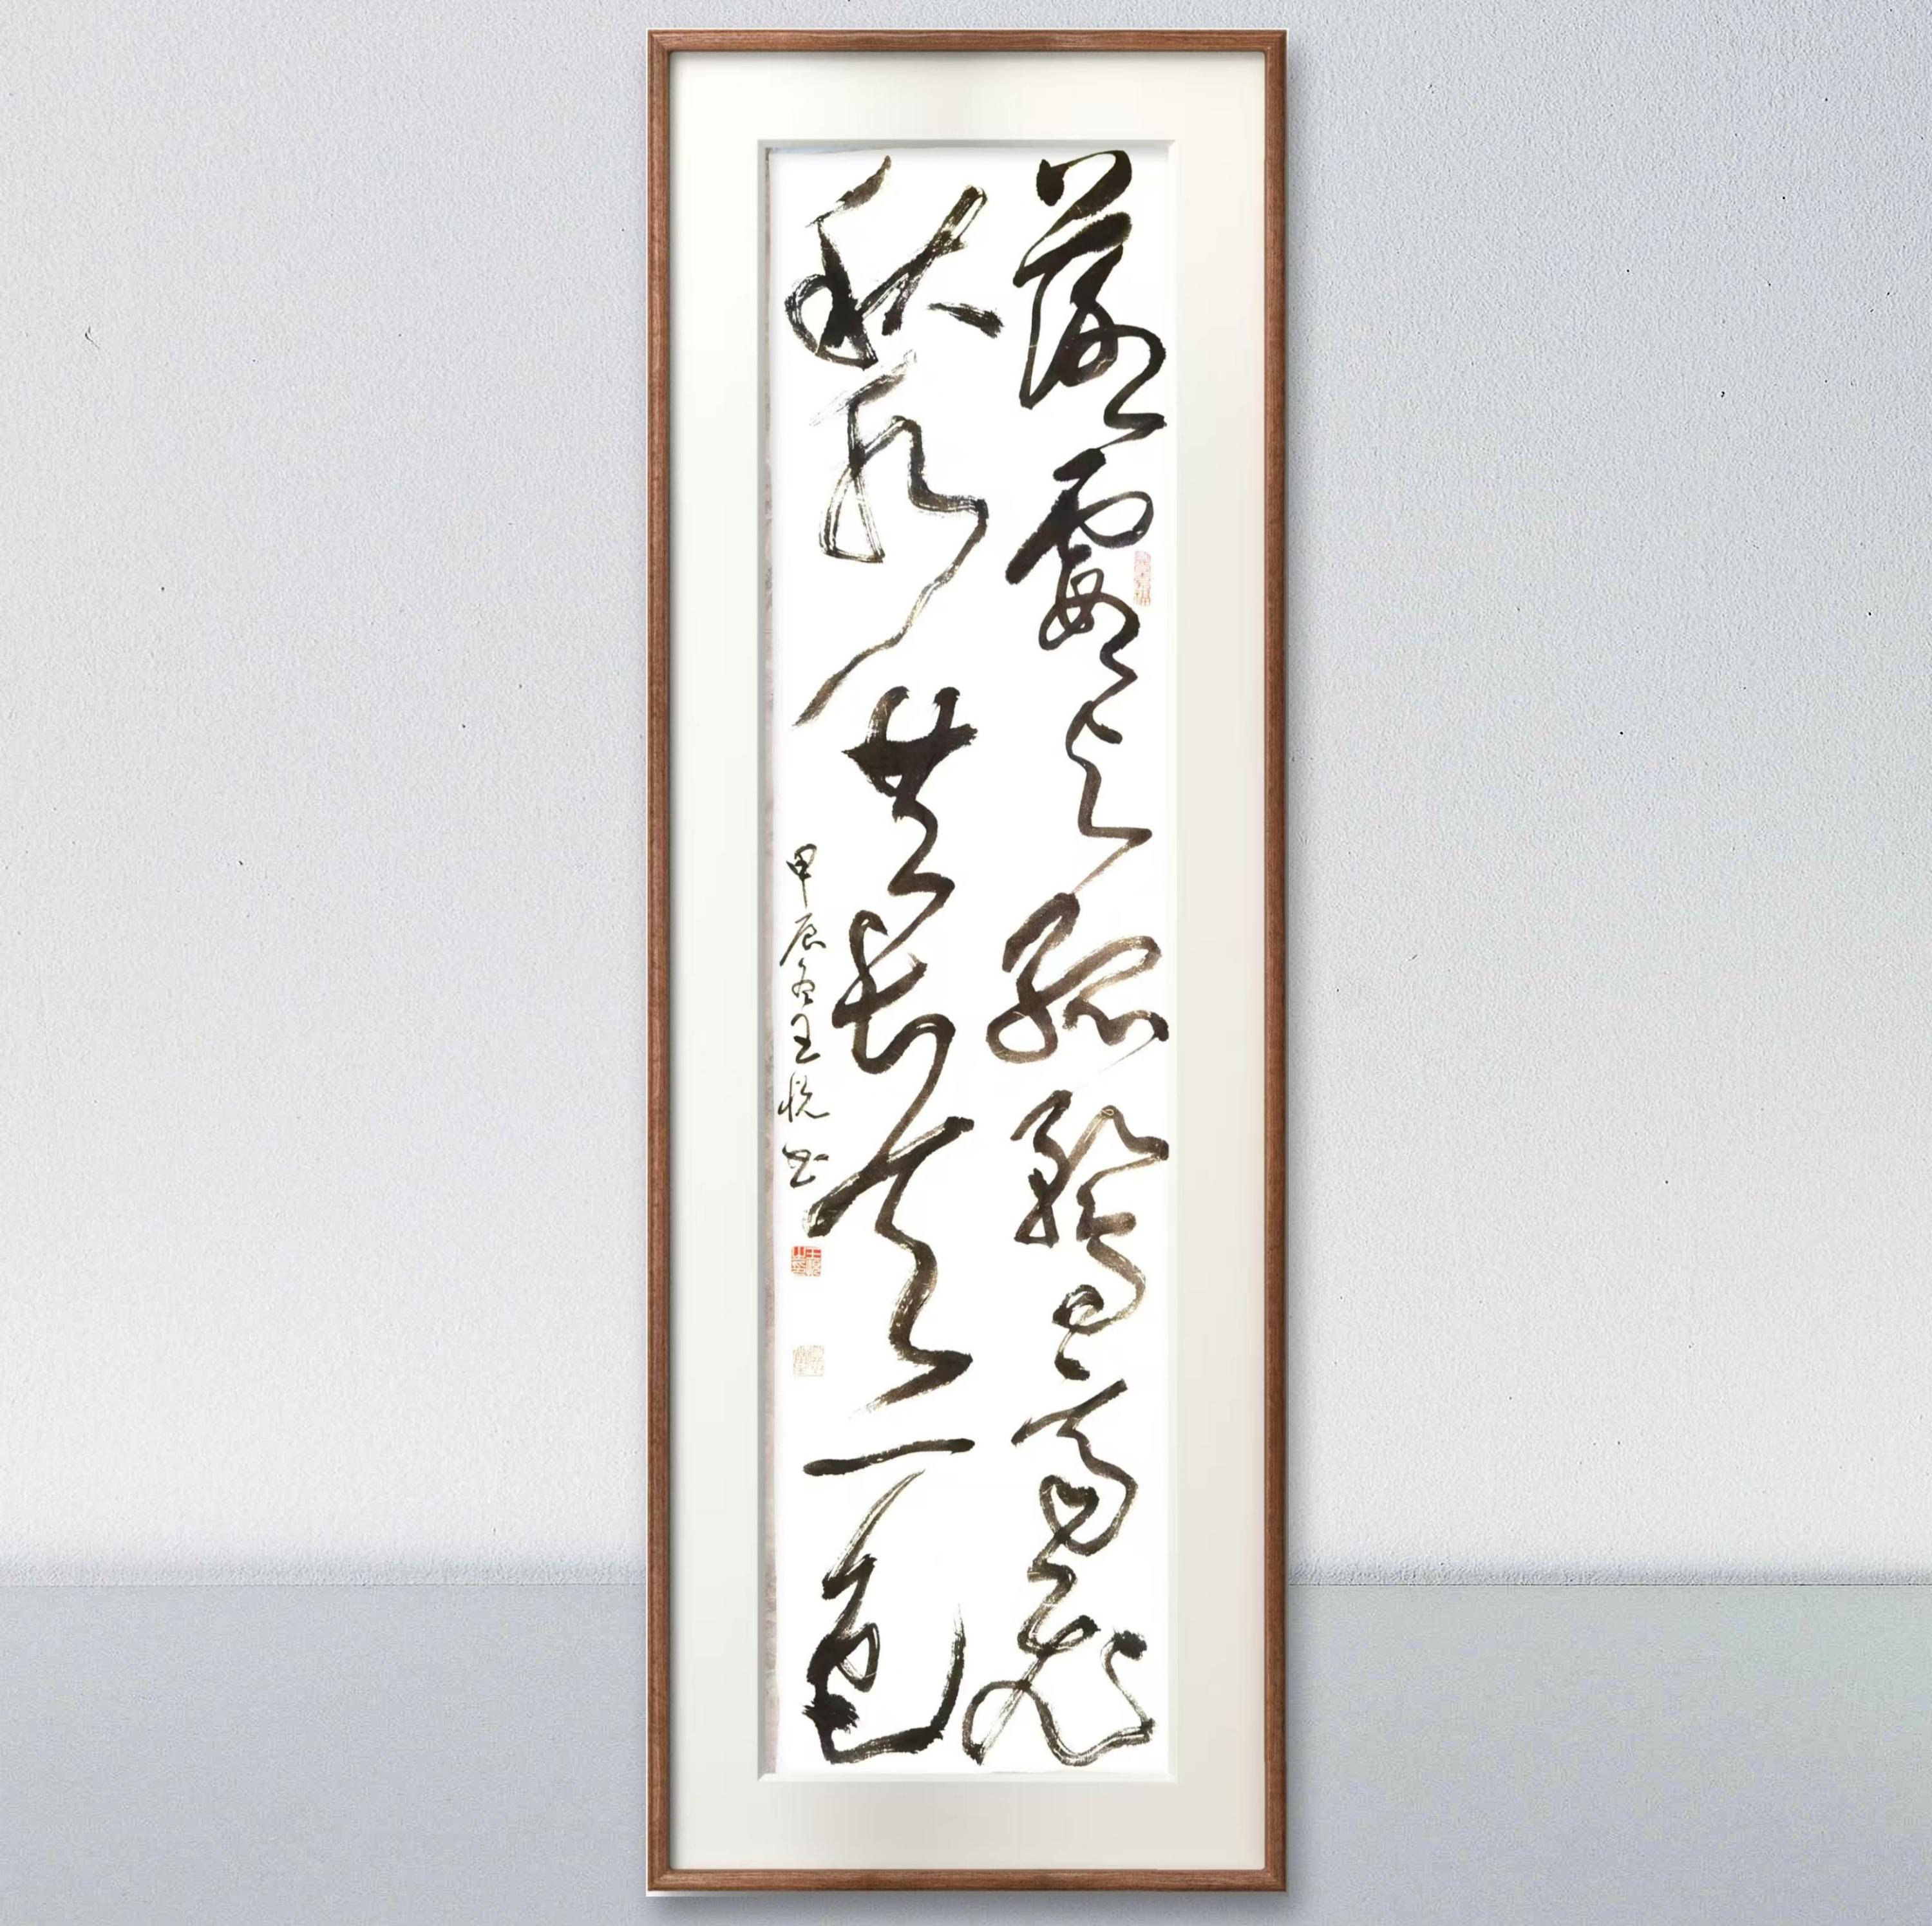 落霞与孤鹜齐飞
秋水共长天一色
甲辰王悦书